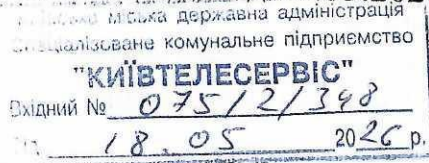 міська державна адміністрація
комунальне підприємство
"КИЇВТЕЛЕСЕРВІС"
Вхідний № 075/2/398
18.05 2026 р.